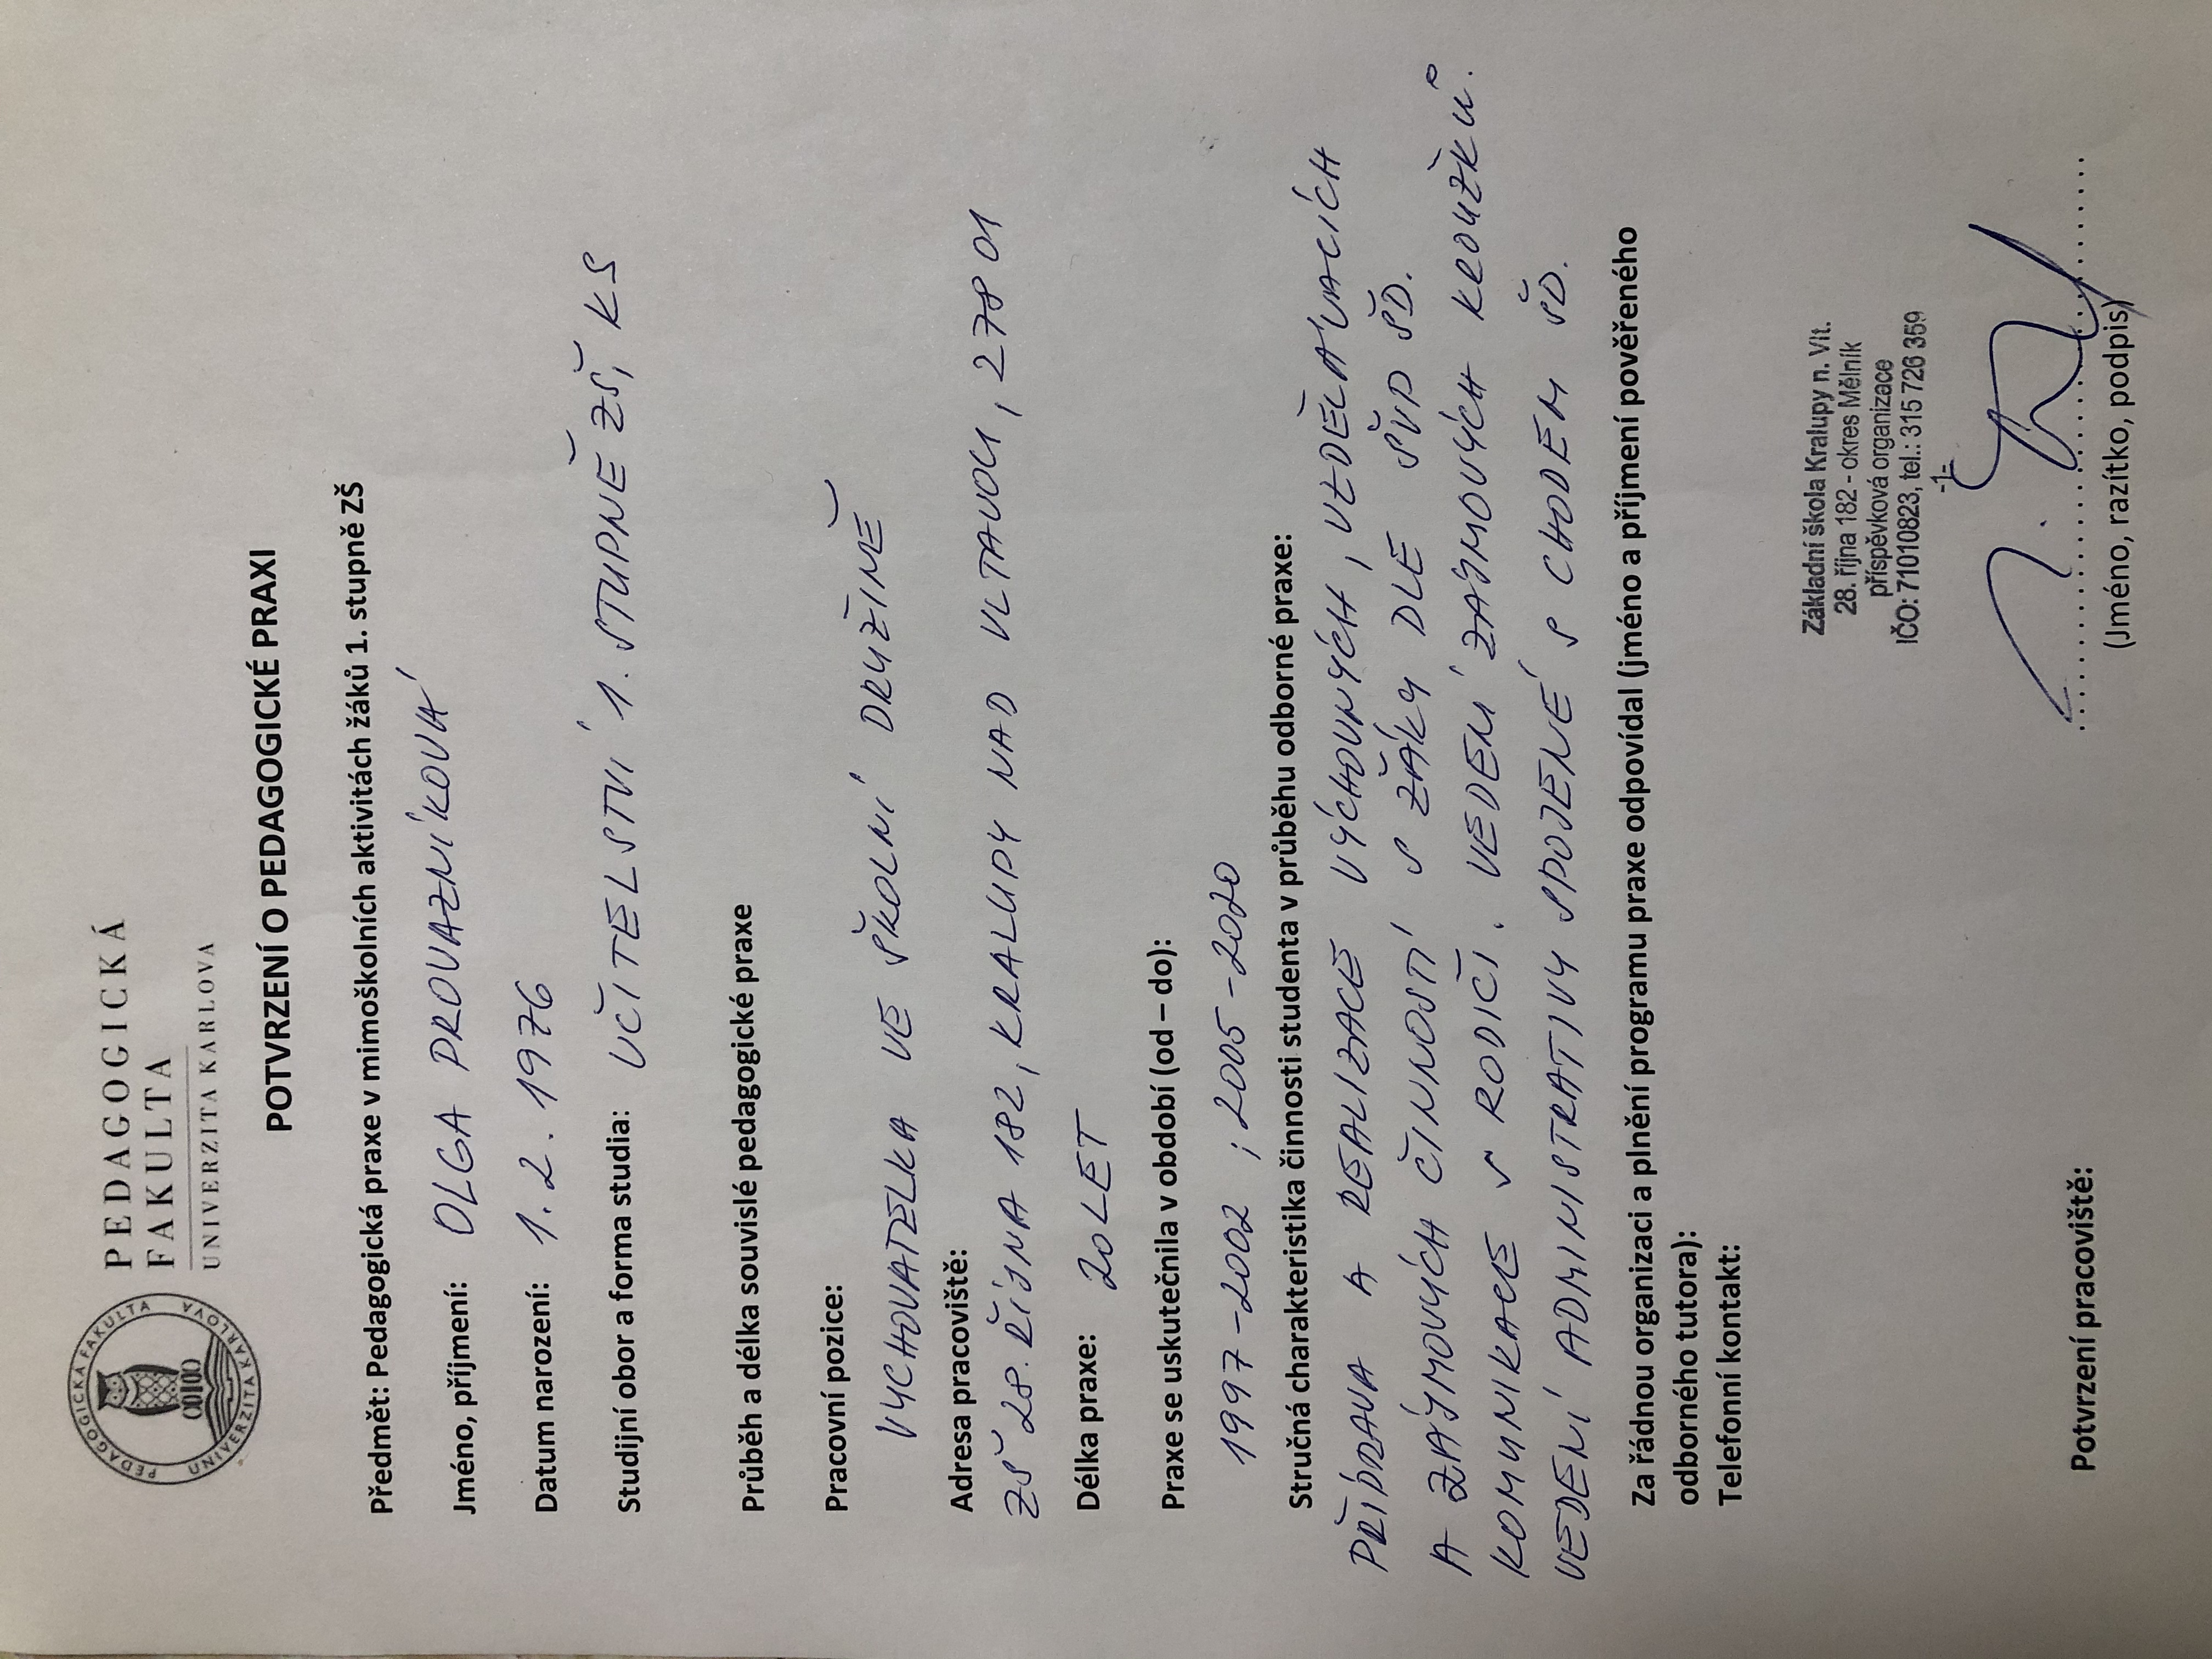 PEDAGOGICKÁ
FAKULTA
UNIVERZITA KARLOVA
PEDAGOGICKÁ FAKULTA
UNIVERZITA KARLOVA
POTVRZENÍ O PEDAGOGICKÉ PRAXI
Předmět: Pedagogická praxe v mimoškolních aktivitách žáků 1. stupně ZŠ
Jméno, příjmení: OLGA PROVAZNÍKOVÁ
Datum narození: 1. 2. 1976
Studijní obor a forma studia: UČITELSTVÍ 1. STUPNĚ ZŠ, KS
Průběh a délka souvislé pedagogické praxe
Pracovní pozice:
VYCHOVATELKA VE ŠKOLNÍ DRUŽINĚ
Adresa pracoviště:
ZŠ 28. ŘÍJNA 182, KRALUPY NAD VLTAVOU, 278 01
Délka praxe: 20 LET
Praxe se uskutečnila v období (od – do):
1997-2002 ; 2005-2020
Stručná charakteristika činnosti studenta v průběhu odborné praxe:
PŘÍPRAVA A REALIZACE VÝCHOVNÝCH, VZDĚLÁVACÍCH
A ZÁJMOVÝCH ČINNOSTÍ S ŽÁKY DLE ŠVP ŠD.
KOMUNIKACE S RODIČI. VEDENÍ ZÁJMOVÝCH KROUŽKŮ.
VEDENÍ ADMINISTRATIVY SPOJENÉ S CHODEM ŠD.
Za řádnou organizaci a plnění programu praxe odpovídal (jméno a příjmení pověřeného
odborného tutora):
Telefonní kontakt:
Základní škola Kralupy n. Vlt.
28. října 182 - okres Mělník
příspěvková organizace
IČO: 71010823, tel.: 315 726 359
-1-
Potvrzení pracoviště:
(Jméno, razítko, podpis)